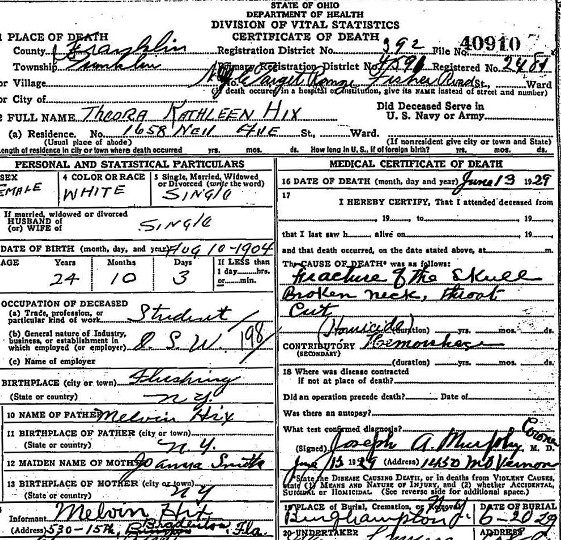 STATE OF OHIO
DEPARTMENT OF HEALTH
DIVISION OF VITAL STATISTICS
CERTIFICATE OF DEATH
1 PLACE OF DEATH
County Franklin Registration District No. 392 File No. 40910
Township Franklin Primary Registration District No. Registered No.
or Village No. Target Range Fisher Road St., Ward
(If death occurred in a hospital or institution, give its NAME instead of street and number)
or City of
2 FULL NAME THEORA KATHLEEN HIX Did Deceased Serve in U. S. Navy or Army
(a) Residence. No. 1658 Neil Ave St., Ward.
(Usual place of abode) (If nonresident give city or town and State)
Length of residence in city or town where death occurred yrs. mos. ds. How long in U. S., if of foreign birth? yrs. mos. ds.
PERSONAL AND STATISTICAL PARTICULARS
SEX FEMALE
4 COLOR OR RACE WHITE
5 Single, Married, Widowed or Divorced (write the word) SINGLE
If married, widowed or divorced
HUSBAND of
(or) WIFE of SINGLE
DATE OF BIRTH (month, day, and year) AUG 10-1904
AGE Years Months Days If LESS than
24 10 3 1 day......hrs.
or......min.
OCCUPATION OF DECEASED
(a) Trade, profession, or particular kind of work Student
(b) General nature of Industry, business, or establishment in which employed (or employer) O. S. U. 198
(c) Name of employer
BIRTHPLACE (city or town) Flushing
(State or country) N.Y.
10 NAME OF FATHER Melvin Hix
11 BIRTHPLACE OF FATHER (city or town)
(State or country) N.Y.
12 MAIDEN NAME OF MOTHER Joanna Smith
13 BIRTHPLACE OF MOTHER (city or town)
(State or country) NY
Informant Melvin Hix
(Address) 530-15th, Bradenton, Fla.
MEDICAL CERTIFICATE OF DEATH
16 DATE OF DEATH (month, day, and year) June 13 1929
17
I HEREBY CERTIFY, That I attended deceased from
, 19 , to , 19
that I last saw h alive on , 19
and that death occurred, on the date stated above, at m.
The CAUSE OF DEATH* was as follows:
Fracture of the Skull
Broken neck, throat
Cut
(Homicide) (duration) yrs. mos. ds.
CONTRIBUTORY Hemorrhage
(SECONDARY)
(duration) yrs. mos. ds.
18 Where was disease contracted
if not at place of death?
Did an operation precede death? Date of
Was there an autopsy?
What test confirmed diagnosis?
(Signed) Joseph A. Murphy Coroner M. D.
June 13 1929 (Address) 1450 Mt Vernon
*State the DISEASE CAUSING DEATH, or in deaths from VIOLENT CAUSES, state (1) MEANS AND NATURE OF INJURY, and (2) whether ACCIDENTAL, SUICIDAL or HOMICIDAL. (See reverse side for additional space.)
19 Place of Burial, Cremation, or Removal DATE OF BURIAL
Binghampton 6-20 29
20 UNDERTAKER ADDRESS